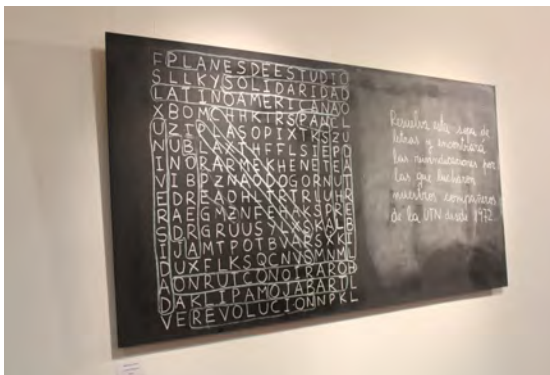 FPLANESDEESTUDIO
SLLKYSOLIDARIDAD
LATINOAMERICANAO
XBOMCHHKTRSPAACL
UZIPLASOPIXTKSZU
NUBLAXTHFFLSIEPD
INORARMEKHENETEA
VIBPZNAODOGORNUT
EDREADHLTRTRLUHR
RAEGMZNFEMAKSPRE
SDRGRUUSYLXSKATB
IJAMTPOTBVARSXKI
DUXFIKSQCNVSMNML
AONRUTCONOTRAROB
DAKLIPAMOJABARTL
VEREVOLUCIONNPKL
Resuelva esta sopa de
letras y encontrará
las reivindicaciones por
las que lucharon
nuestros compañeros
de la UTN desde 1972